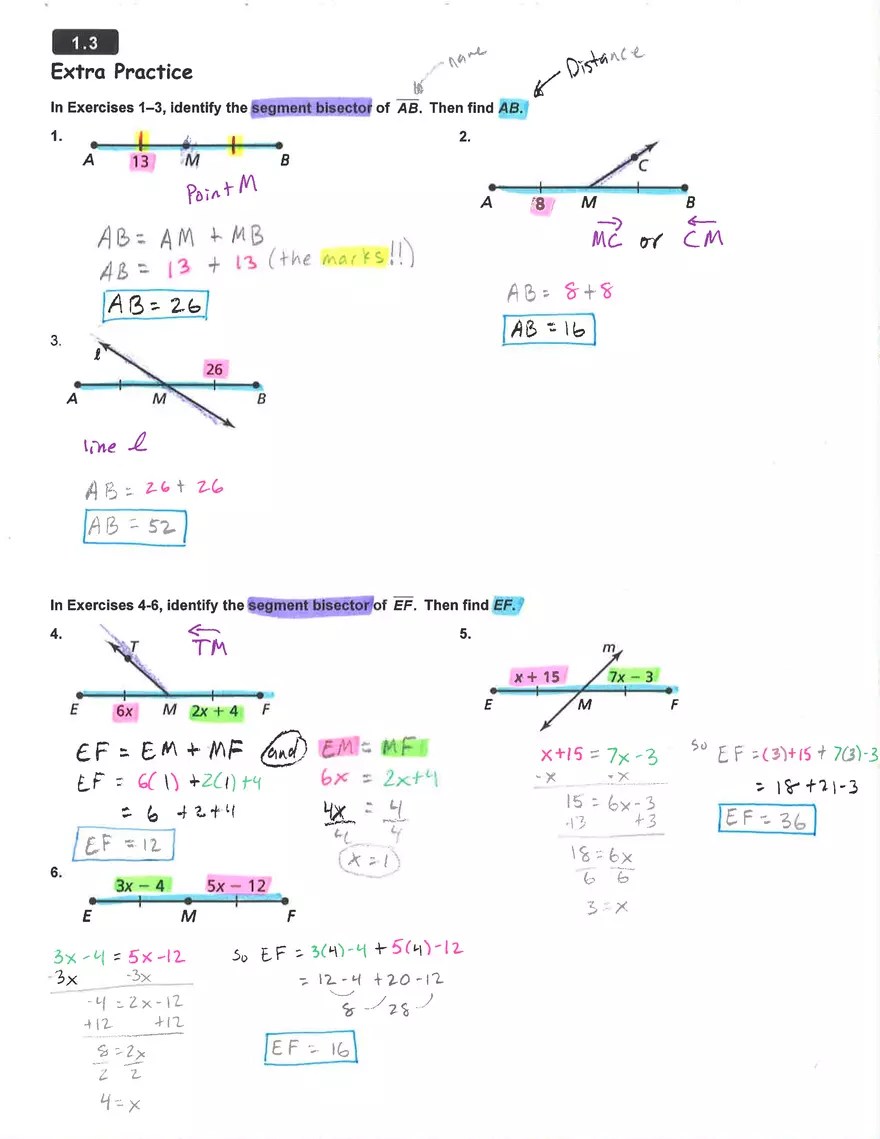 1.3
name
Distance
Extra Practice
In Exercises 1–3, identify the segment bisector of AB. Then find AB.
1.
A 13 M B
Point M
AB = AM + MB
AB = 13 + 13 (the marks!!)
AB = 26
2.
C
A 8 M B
MC or CM
AB = 8 + 8
AB = 16
3.
ℓ
26
A M B
line ℓ
AB = 26 + 26
AB = 52
In Exercises 4-6, identify the segment bisector of EF. Then find EF.
4.
T
TM
E 6x M 2x + 4 F
EF = EM + MF and EM = MF
EF = 6(1) + 2(1) + 4
6x = 2x + 4
= 6 + 2 + 4
4x = 4
4 4
EF = 12
x = 1
5.
m
x + 15 7x − 3
E M F
x + 15 = 7x - 3
-x -x
15 = 6x - 3
+3
18 = 6x
6 6
3 = x
So EF = (3) + 15 + 7(3) - 3
= 18 + 21 - 3
EF = 36
6.
3x − 4 5x − 12
E M F
3x - 4 = 5x - 12
-3x -3x
-4 = 2x - 12
+12 +12
8 = 2x
2 2
4 = x
So EF = 3(4) - 4 + 5(4) - 12
= 12 - 4 + 20 - 12
8 28
EF = 16